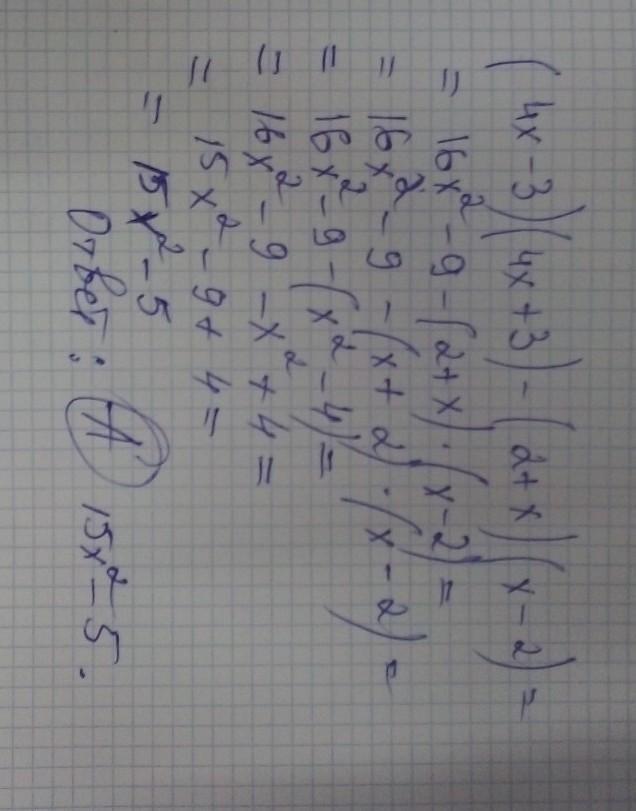 (4x-3)(4x+3)-(2+x)(x-2)=
= 16x²-9-(2+x)·(x-2)=
= 16x²-9-(x+2)·(x-2)=
= 16x²-9-(x²-4)=
= 16x²-9-x²+4=
= 15x²-9+4=
= 15x²-5
Ответ: А 15x²-5.